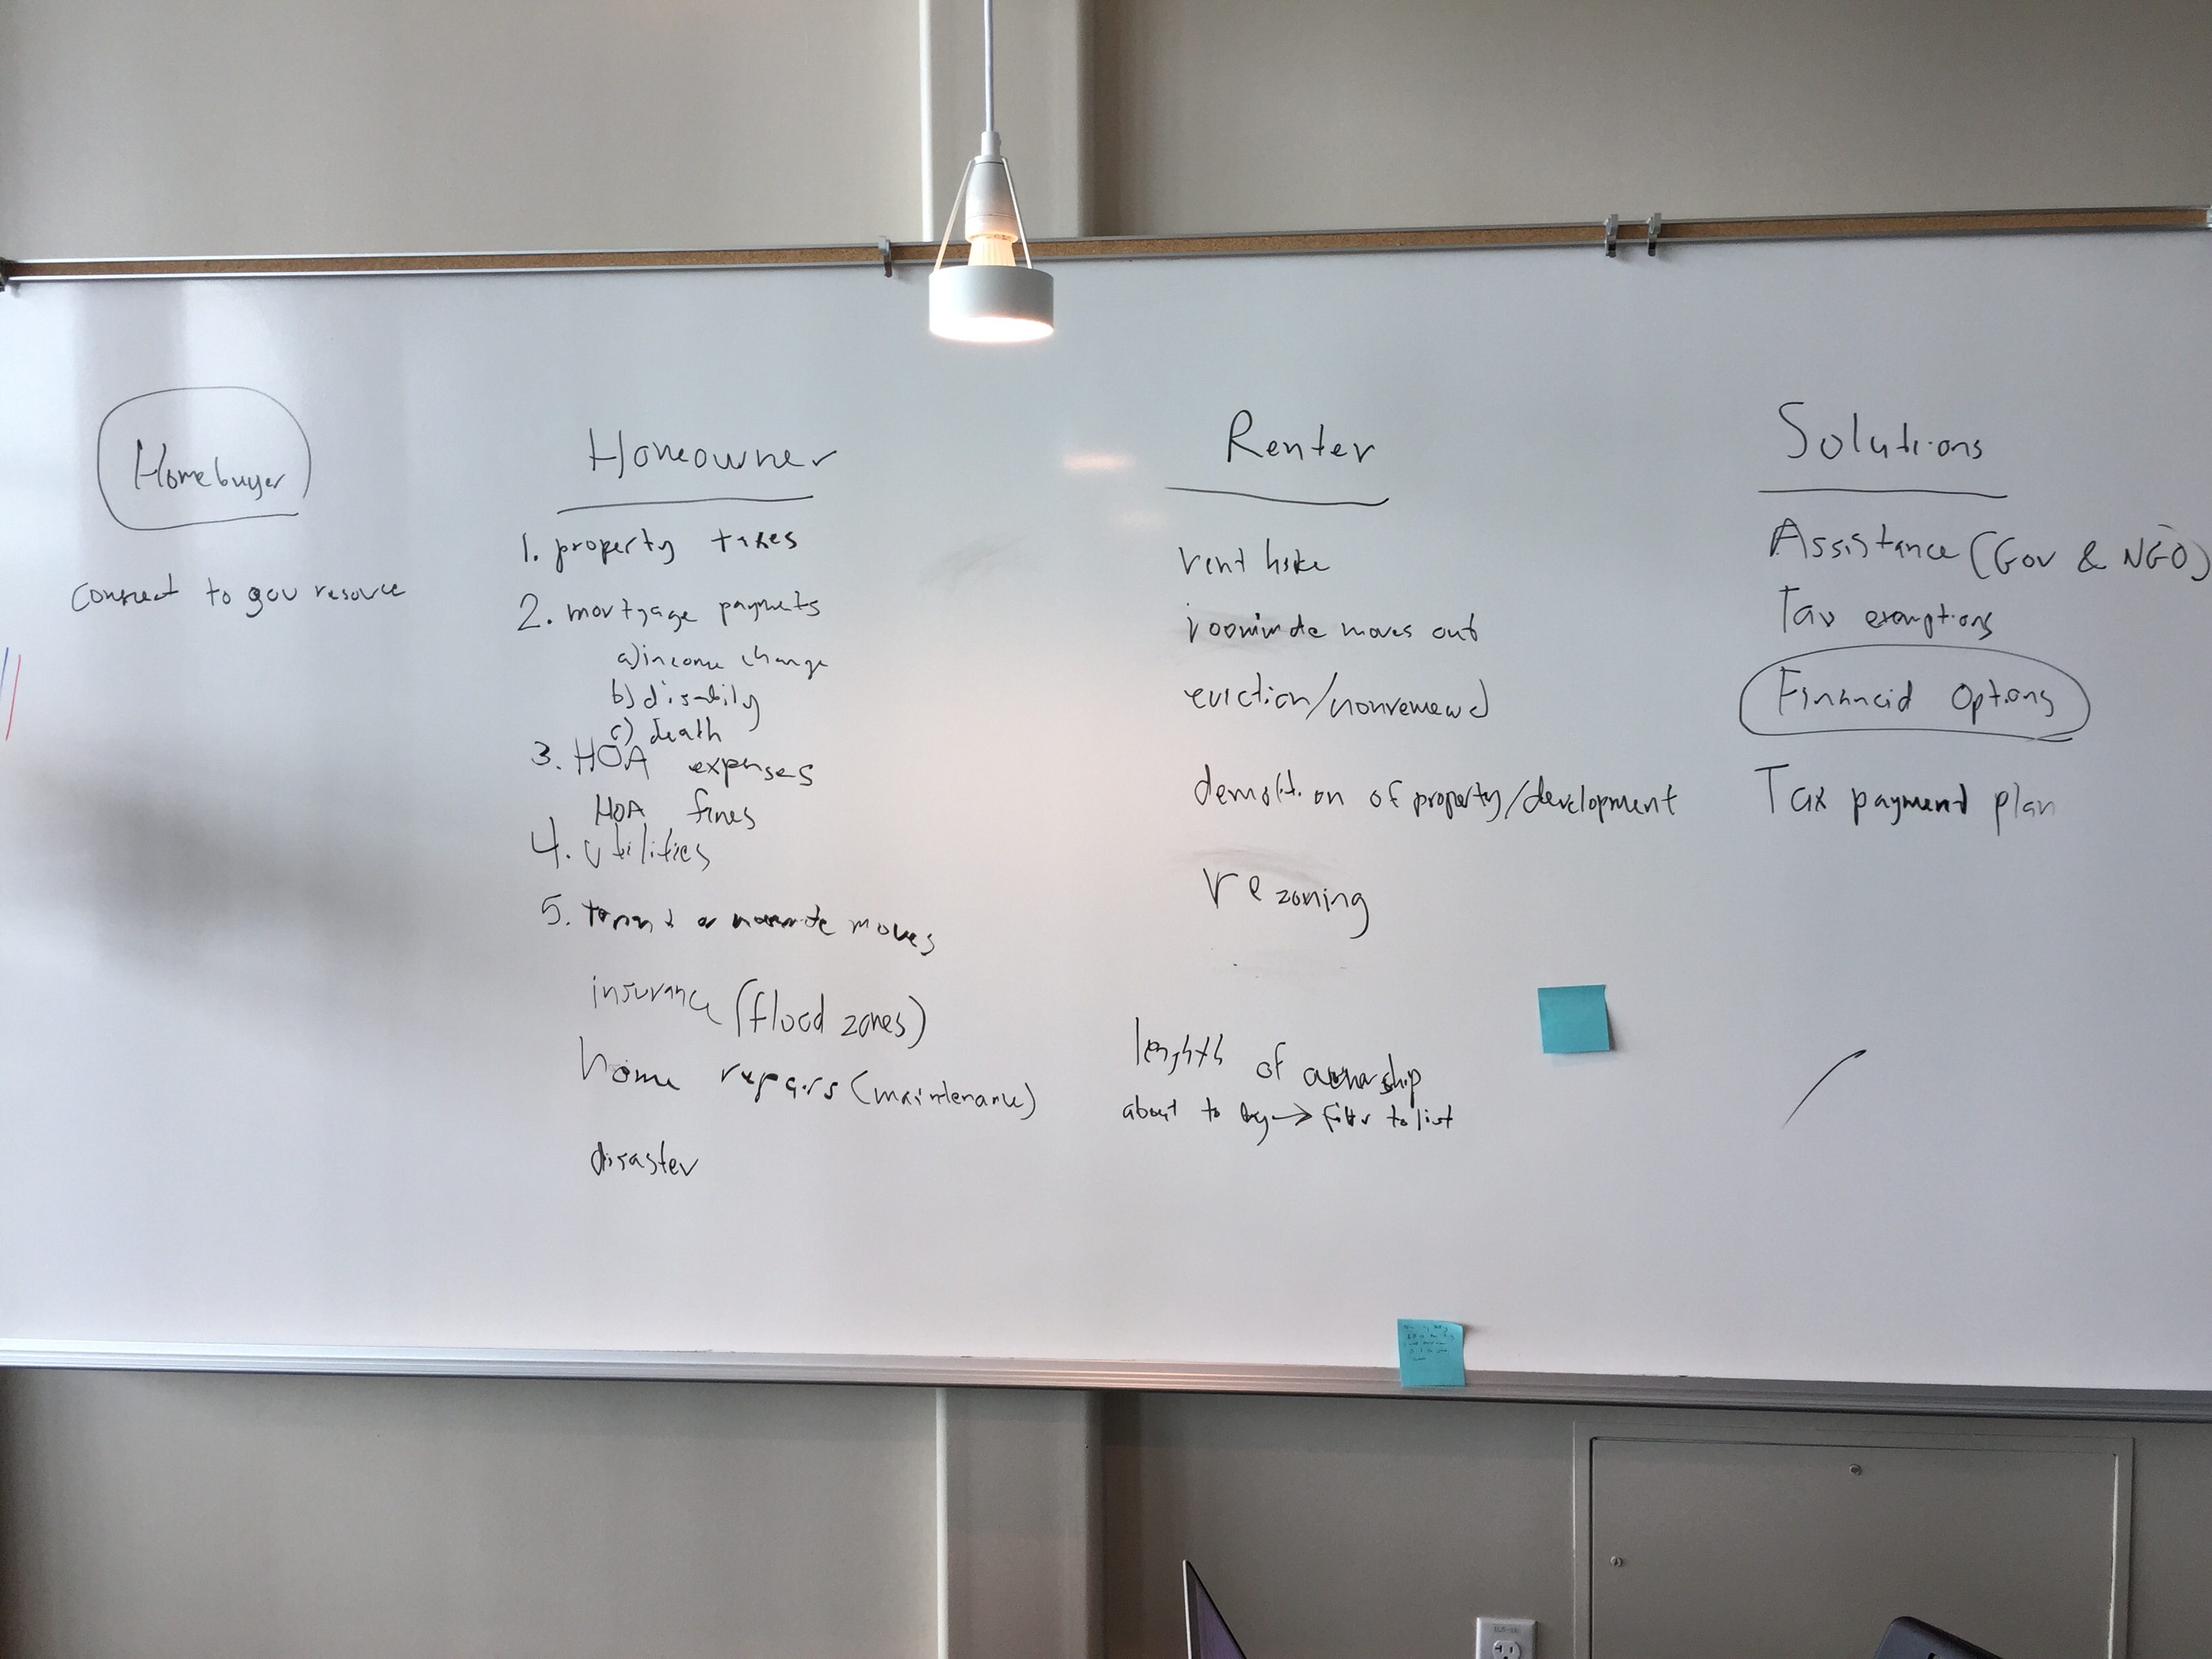 Homebuyer
connect to gov resource
Homeowner
1. property taxes
2. mortgage payments
a) income change
b) disability
c) death
3. HOA expenses
HOA fines
4. utilities
5. tenant or moves
insurance (flood zones)
home repairs (maintenance)
disaster
Renter
rent hike
roommate moves out
eviction/nonrenewal
demolition of property/development
rezoning
length of ownership
about to buy → filter to list
Solutions
Assistance (Gov & NGO)
Tax exemptions
Financial Options
Tax payment plan